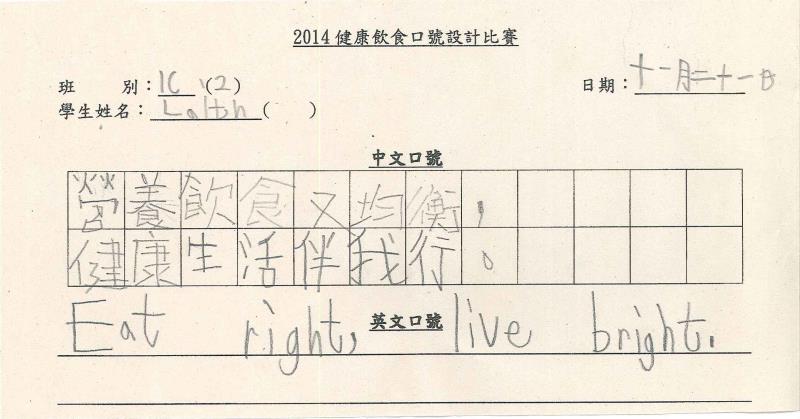 2014健康飲食口號設計比賽
班 別：1C (2)
日期：十一月二十一日
學生姓名：( )
中文口號
營養飲食又均衡，
健康生活伴我行。
英文口號
Eat right, live bright.